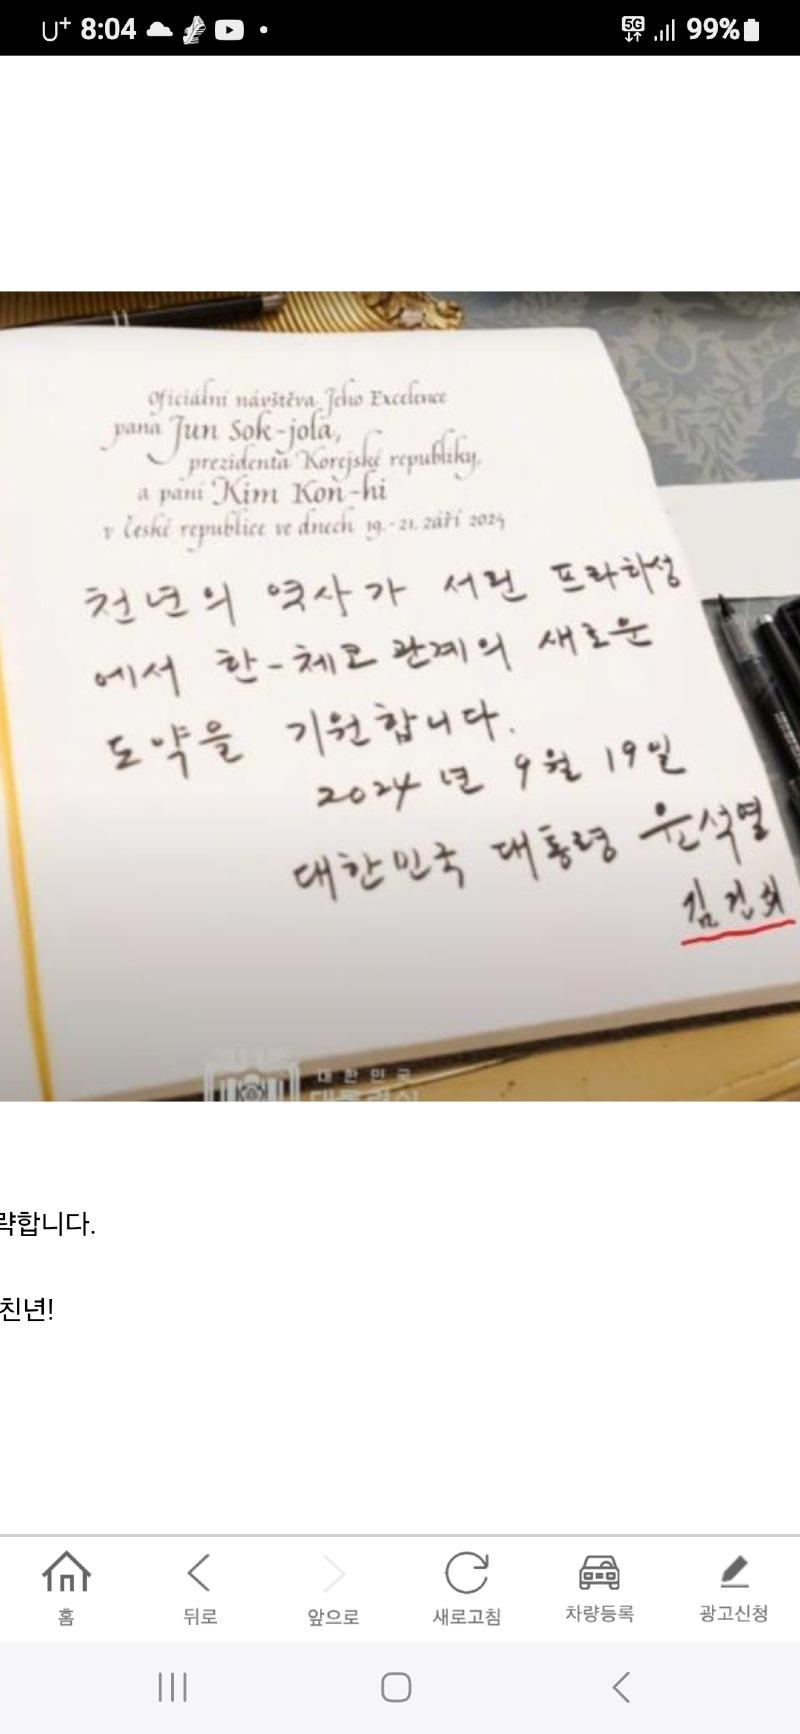 U+ 8:04
5G 99%
Oficiální návštěva Jeho Excelence
pana Jun Sok-jola,
prezidenta Korejské republiky,
a paní Kim Kon-hi
v České republice ve dnech 19.-21. září 2024
천년의 역사가 서린 프라하성
에서 한-체코 관계의 새로운
도약을 기원합니다.
2024년 9월 19일
대한민국 대통령 윤석열
김건희
대한민국
략합니다.
친년!
홈 뒤로 앞으로 새로고침 차량등록 광고신청